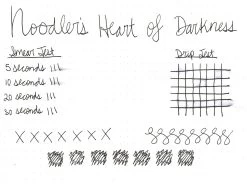 Noodler's Heart of Darkness
Smear Test
Drip Test
5 seconds
10 seconds
20 seconds
30 seconds
X X X X X X X